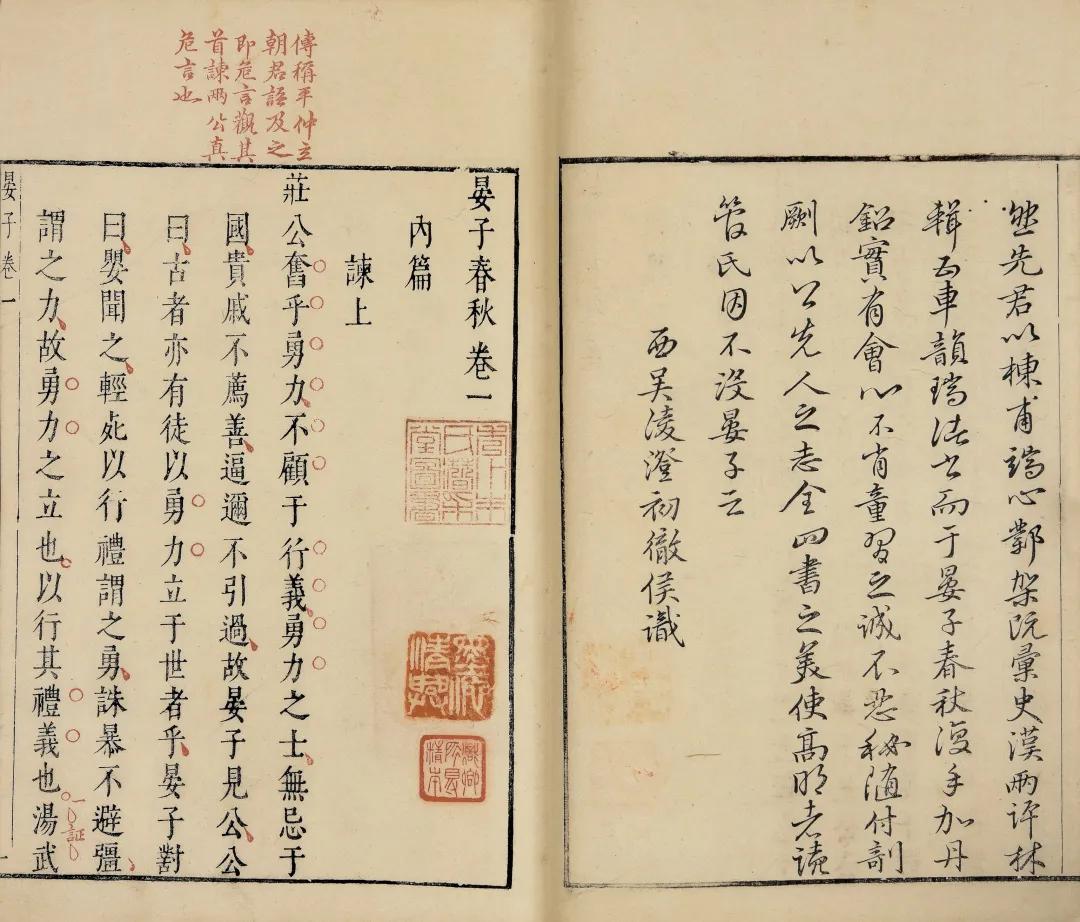 然先君以棟甫端心鄴架既彙史漢兩評林
輯五車韻瑞済世而于晏子春秋復手加丹
鉛實有會心不肖童習之誠不忍秘随付剞
劂以公先人之志全四書之美使髙明者讀
管氏因不没晏子云
西吴淩澄初徹侯識
傳稱平仲立
朝君語及之
即危言觀其
首諫兩公真
危言也
晏子春秋卷一
內篇
諫上
莊公奮乎勇力不顧于行義勇力之士無忌于
國貴戚不薦善逼邇不引過故晏子見公公
曰古者亦有徒以勇力立于世者乎晏子對
曰嬰聞之輕死以行禮謂之勇誅暴不避彊
謂之力故勇力之立也以行其禮義也湯武
一証
晏子卷一